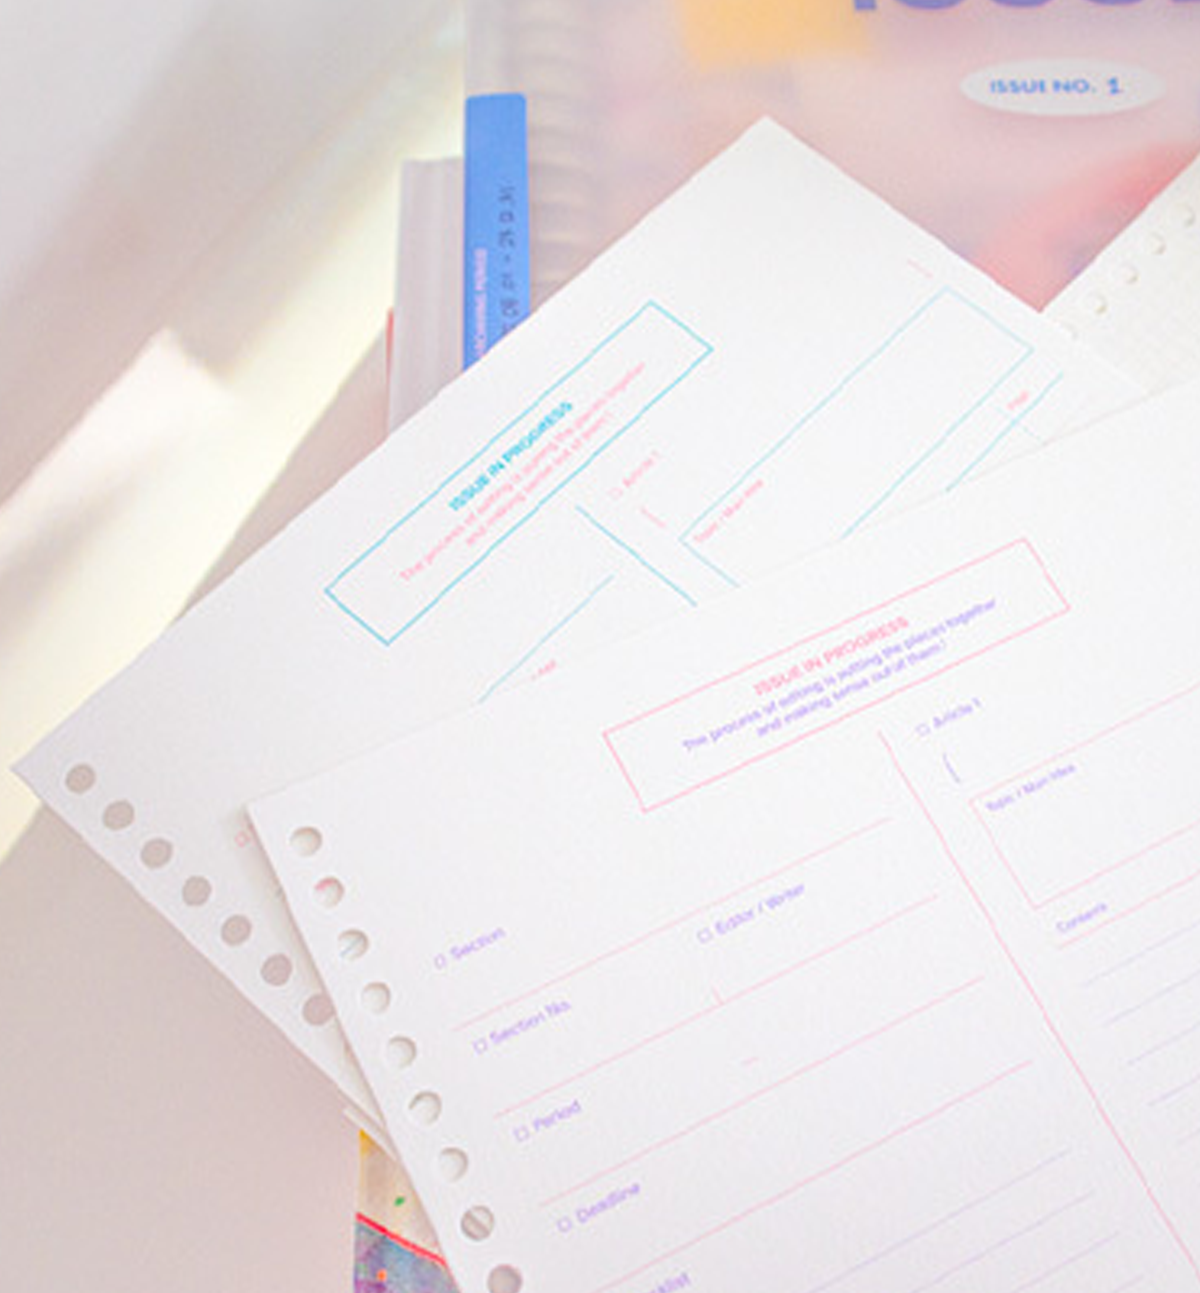 ISSUE NO. 1
ISSUE IN PROGRESS
The process of editing is putting the pieces together
and making sense out of them!
□ Article 1
Topic / Main Idea
ISSUE IN PROGRESS
The process of editing is putting the pieces together
and making sense out of them!
□ Article 1
Topic / Main Idea
Contents
□ Section
□ Editor / Writer
□ Section No.
□ Period
□ Deadline